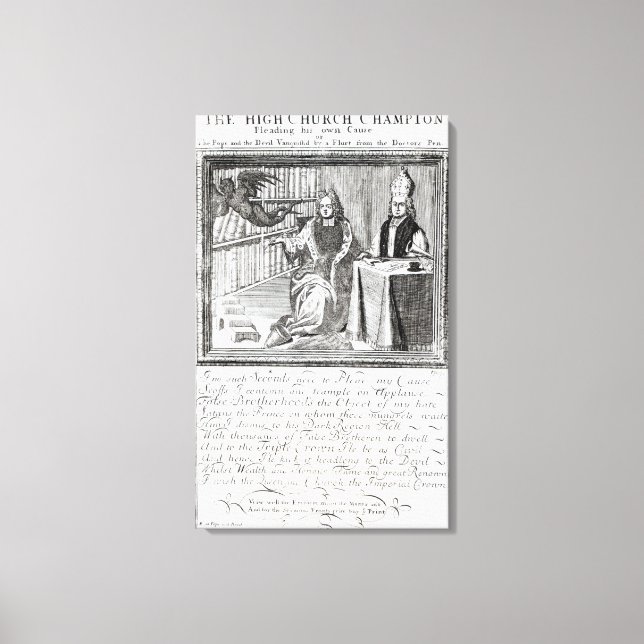 THE HIGH CHURCH CHAMPION
Pleading his own Cause
or
The Pope and the Devil Vanquish'd by a Flurt from the Doctors Pen.
I no such Seconds need to Plead my Cause
Scoffs I contemn and trample on Applause
False Brotherhoods the Object of my hate
Satans the Prince on whom these wait
Him I to his Dark Region Hell
With thousands of False Brethren to dwell
And to the Triple Crown I'le be as Civil
And hence I'le kick it headlong to the Devil
Whilst Wealth and Honour Fame and great Renown
I wish the Queen and Church the Imperial Crown
View well the in the
And for the print buy Print